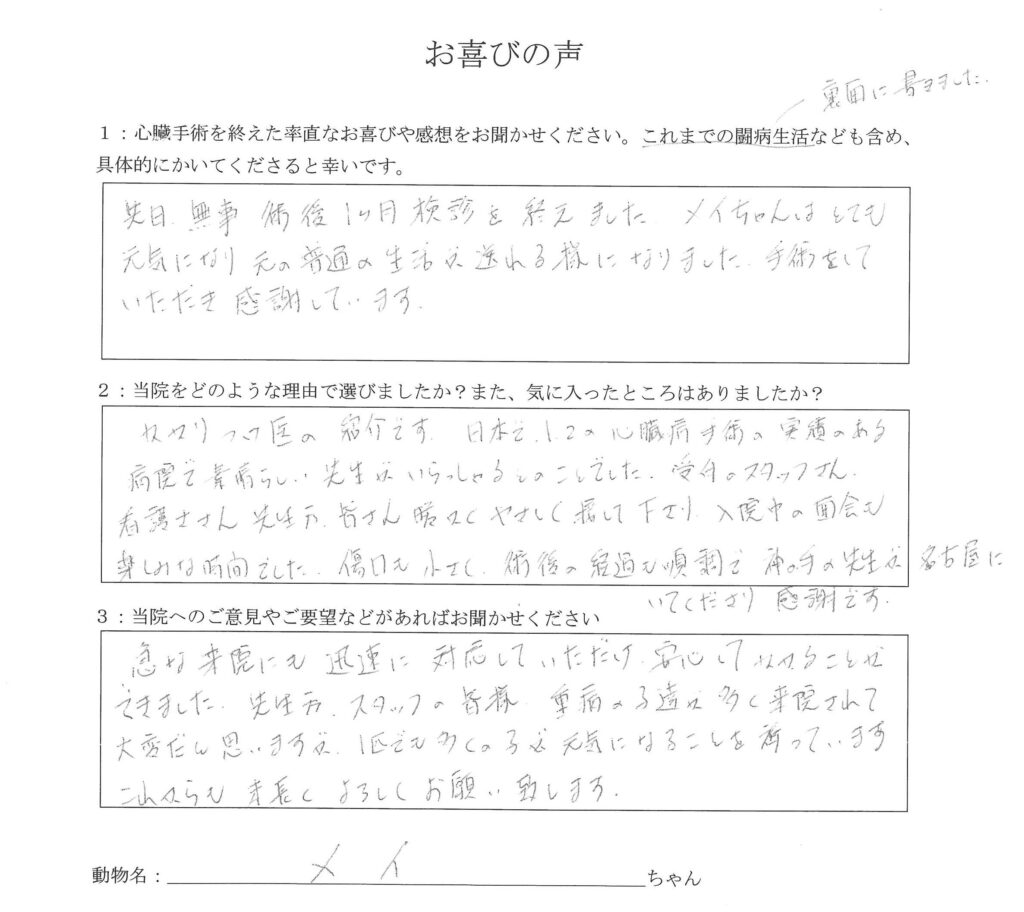 お喜びの声
裏面に書きました.
1：心臓手術を終えた率直なお喜びや感想をお聞かせください。これまでの闘病生活なども含め、
具体的にかいてくださると幸いです。
先日、無事 術後1ヶ月検診を終えました メイちゃんはとても
元気になり元の普通の生活が送れる様になりました. 手術をして
いただき感謝しています.
2：当院をどのような理由で選びましたか？また、気に入ったところはありましたか？
かかりつけ医の紹介です. 日本で1.2の心臓病手術の実績のある
病院で素晴らしい先生がいらっしゃるとのことでした. 受付のスタッフさん.
看護士さん 先生方、皆さん暖かくやさしく接して下さり. 入院中の面会も
楽しみな時間でした. 傷口も小さく. 術後の経過も順調で 神の手の先生が 名古屋に
いてくださり 感謝です.
3：当院へのご意見やご要望などがあればお聞かせください
急な来院にも迅速に対応していただけ. 安心してかかることが
できました. 先生方、スタッフの皆様. 重病の子達が多く来院されて
大変だと思いますが. 1匹でも多くの子が元気になることを祈っています
これからも末長くよろしくお願い致します.
動物名：メイちゃん